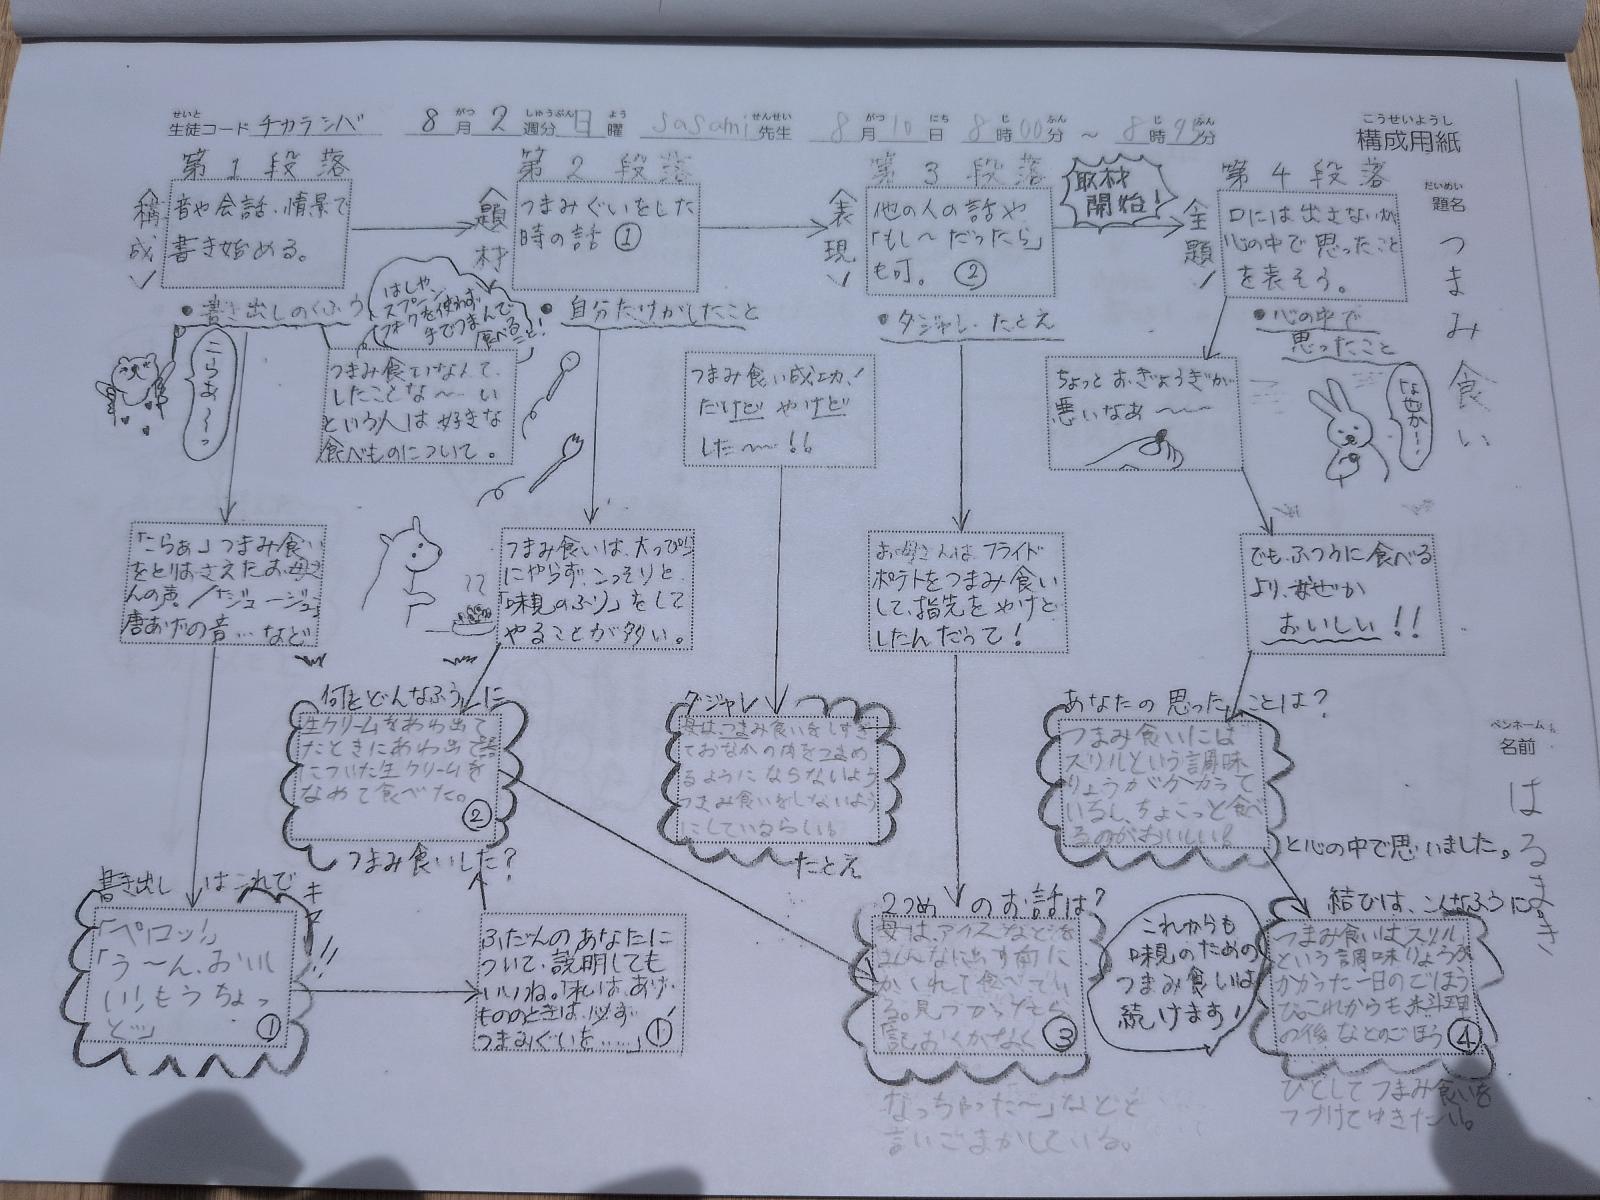 せいと がつ しゅうぶん よう せんせい がつ にち じ ふん じ ふん
生徒コード チカラシバ 8月2週分日曜 sasami先生 8月10日8時00分～8時45分
こうせいようし
構成用紙
だいめい
題名
つまみ食い
ペンネーム
名前
はるまき
第1段落
構成
音や会話、情景で
書き始める。
・書き出しのくふう
こらぁ〜っ
はしや
スプーン
フォークを使わず
手でつまんで
食べること!
つまみ食いなんて、
したことな〜い
という人は好きな
食べものについて。
「こらぁ」つまみ食い
をとりおさえたお母さ
んの声/「ジュージュー」
唐あげの音…など
書き出しはこれで
キマ
!!
「ペロッ!」
「う〜ん、おいし
い!もうちょっ
とッ」
①
第2段落
題材
つまみぐいをした
時の話 ①
・自分だけがしたこと
つまみ食いは、大っぴら
にやらず、こっそりと、
「味見のふり」をして
やることが多い。
何をどんなふうに
生クリームをあわ出て
たときにあわ出て器
についた生クリームを
なめて食べた。
②
つまみ食いした?
ふだんのあなたに
ついて、説明しても
いいね。「私は、あげ
もののときは、必ず
つまみぐいを……」
①
第3段落
表現
他の人の話や
「もし〜だったら」
も可。 ②
・ダジャレ・たとえ
つまみ食い成功!
だけど やけど
した〜!!
お母さんは、フライド
ポテトをつまみ食い
して、指先をやけど
したんだって!
ダジャレ
母は、つまみ食いをしすぎ
ておなかの肉をつまめ
るようにならないよう
つまみ食いをしないよう
にしているらしい。
たとえ
2つめのお話は?
母は、アイスなどを
みんなに出す前に
かくれて食べてい
る。見つかってても
「記おくがなく
③
なっちゃった〜」などと
言いごまかしている。
取材
開始!
第4段落
主題
口には出さないが
心の中で思ったこと
を表そう。
・心の中で
思ったこと
「なぜか…」
ちょっとおぎょうぎが
悪いなあ〜〜
でも、ふつうに食べる
より、なぜか
おいしい!!
あなたの思ったことは?
つまみ食いには
スリルという調味
りょうがかかって
いるし、ちょこっと食べ
るのがおいしい!
と心の中で思いました。
これからも
味見のための
つまみ食いは
続けます!
結びは、こんなふうに。
つまみ食いはスリル
という調味りょうが
かかった一日のごほう
び。これからも料理
の後などのごほう
④
びとしてつまみ食いを
つづけてゆきたい。